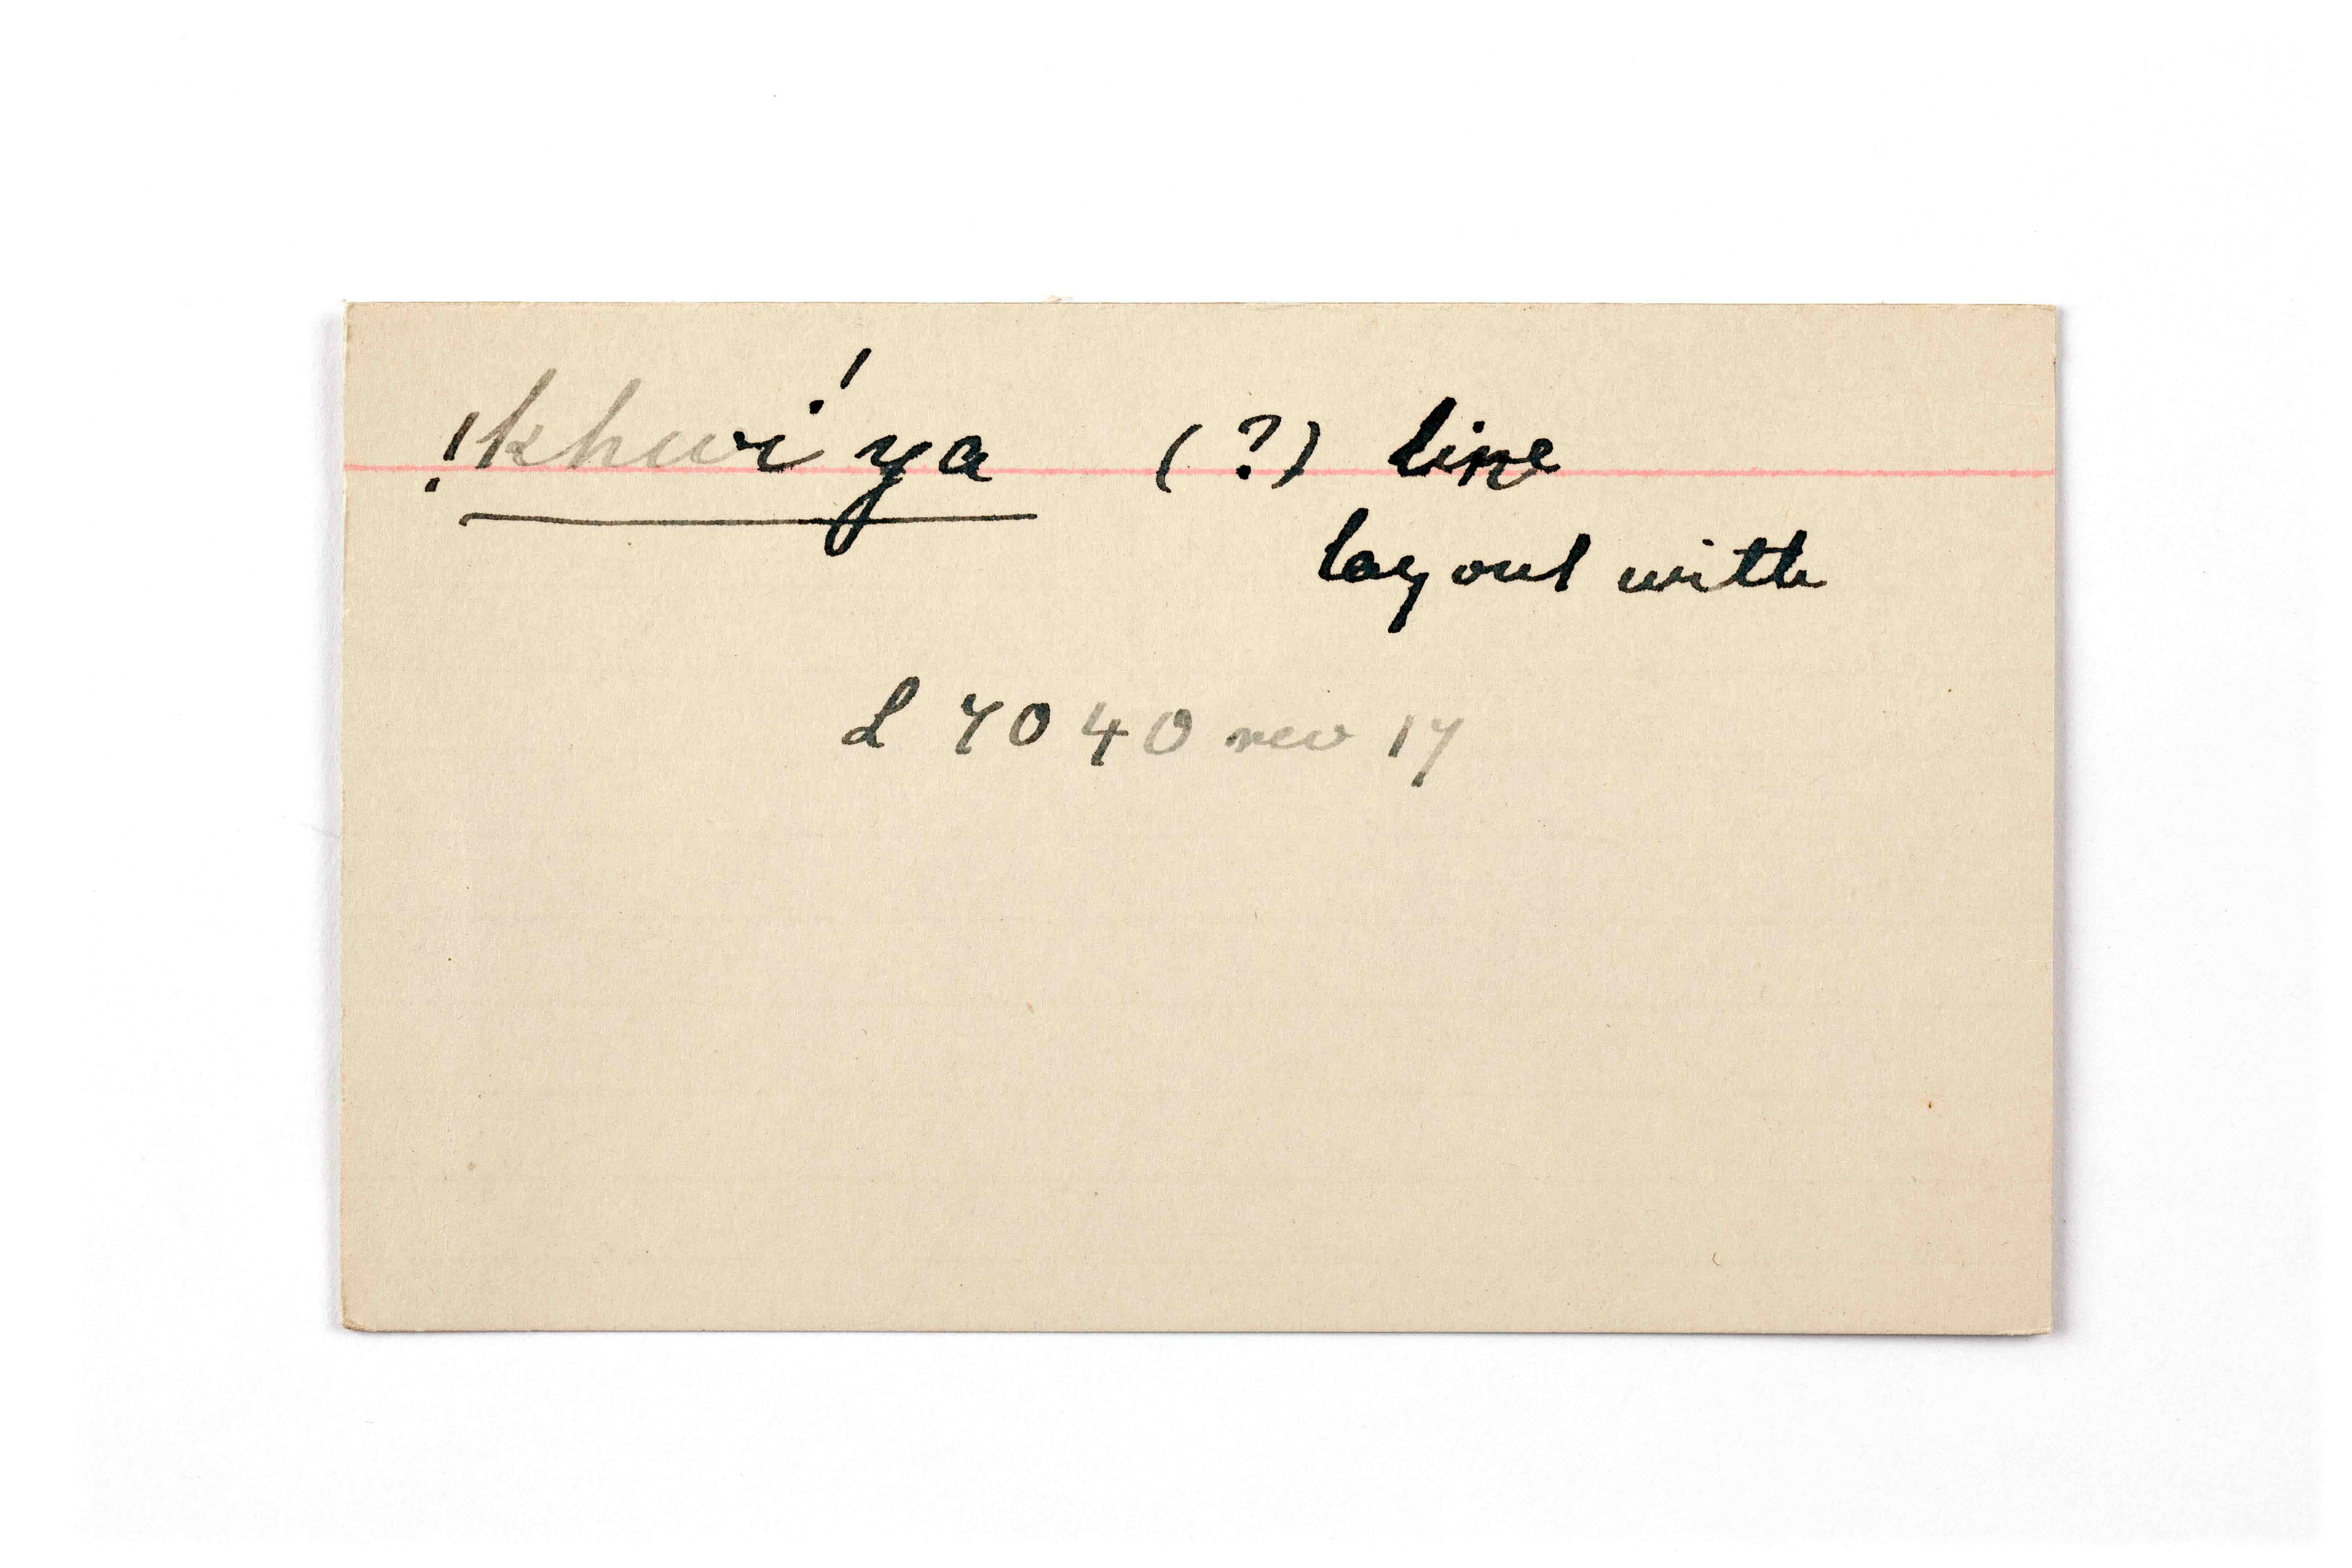 !khwi'ya (?) line
lay out with
L 7040 rev 17